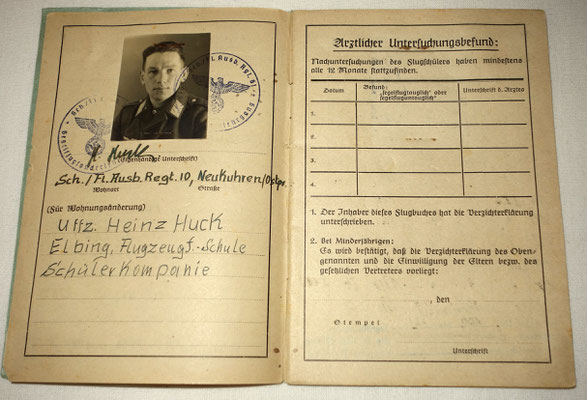 H. Huck
(Eigenhändige Unterschrift)
Sch./Fl. Ausb. Regt. 10, Neukuhren/Ostpr.
Wohnort Straße
(Für Wohnungsänderung)
Uffz. Heinz Huck
Elbing, Flugzeugf.-Schule
Schülerkompanie
Ärztlicher Untersuchungsbefund:
Nachuntersuchungen des Flugschülers haben mindestens
alle 12 Monate stattzufinden.
Datum Befund: „segelflugtauglich“ oder segelfluguntauglich“ Unterschrift d. Arztes
1.
2.
3.
4.
1. Der Inhaber dieses Flugbuches hat die Verzichterklärung
unterschrieben.
2. Bei Minderjährigen:
Es wird bestätigt, daß die Verzichterklärung des Oben-
genannten und die Einwilligung der Eltern bezw. des
gesetzlichen Vertreters vorliegt:
, den
Stempel
Unterschrift